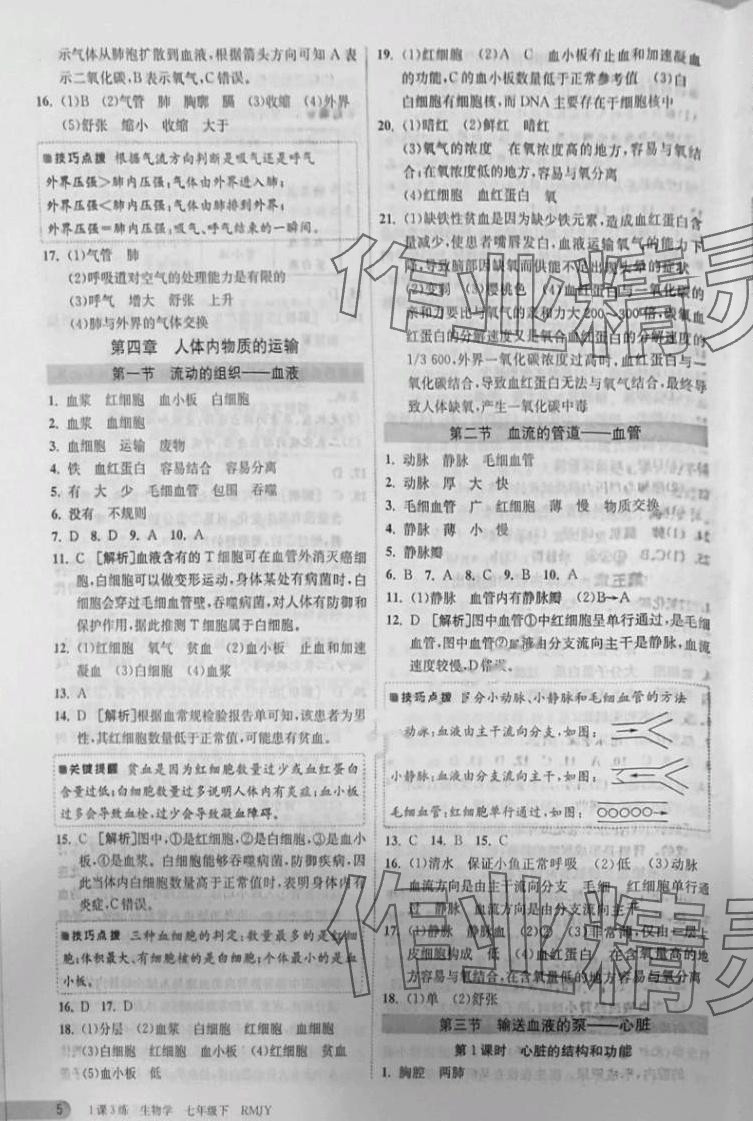 示气体从肺泡扩散到血液,根据箭头方向可知 A 表
示二氧化碳,B 表示氧气,C 错误。
16. (1)B (2)气管 肺 胸廓 膈 (3)收缩 (4)外界
(5)舒张 缩小 收缩 大于
技巧点拨 根据气流方向判断是吸气还是呼气
外界压强>肺内压强:气体由外界进入肺;
外界压强<肺内压强:气体由肺排到外界;
外界压强=肺内压强:吸气、呼气结束的一瞬间。
17. (1)气管 肺
(2)呼吸道对空气的处理能力是有限的
(3)呼气 增大 舒张 上升
(4)肺与外界的气体交换
第四章 人体内物质的运输
第一节 流动的组织——血液
1. 血浆 红细胞 血小板 白细胞
2. 血浆 血细胞
3. 血细胞 运输 废物
4. 铁 血红蛋白 容易结合 容易分离
5. 有 大 少 毛细血管 包围 吞噬
6. 没有 不规则
7. D 8. D 9. A 10. A
11. C [解析]血液含有的 T 细胞可在血管外消灭癌细
胞,白细胞可以做变形运动,身体某处有病菌时,白
细胞会穿过毛细血管壁,吞噬病菌,对人体有防御和
保护作用,据此推测 T 细胞属于白细胞。
12. (1)红细胞 氧气 贫血 (2)血小板 止血和加速
凝血 (3)白细胞 (4)血浆
13. A
14. D [解析]根据血常规检验报告单可知,该患者为男
性,其红细胞数量低于正常值,可能患有贫血。
关键提醒 贫血是因为红细胞数量过少或血红蛋白
含量过低;白细胞数量过多说明人体内有炎症;血小板
过多会导致血栓,过少会导致凝血障碍。
15. C [解析]图中,①是红细胞,②是白细胞,③是血小
板,④是血浆。白细胞能够吞噬病菌,防御疾病,因
此当体内白细胞数量高于正常值时,表明体内有
炎症,C 错误。
技巧点拨 三种血细胞的判定:数量最多的是红细
胞;体积最大、有细胞核的是白细胞;个体最小的是血
小板。
16. D 17. D
18. (1)分层 (2)血浆 白细胞 红细胞 (3)红细胞
血小板 白细胞 (4)血浆 (5)红细胞 贫血
血小板 低
19. (1)红细胞 C (2)C 血小板有止血和加速凝血
的功能,C 的血小板数量低于正常参考值 (3)白
白细胞有细胞核,而 DNA 主要存在于细胞核中
20. (1)暗红 (2)鲜红 暗红
(3)氧气的浓度 在氧浓度高的地方,容易与氧结
合;在氧浓度低的地方,容易与氧分离
(4)红细胞 血红蛋白 氧
21. (1)缺铁性贫血是因为缺少铁元素,造成血红蛋白含
量减少,使患者嘴唇发白,血液运输氧气的能力下
降,导致脑部因缺氧而供能不足出现头晕的症状
(2)变刺 (3)樱桃色 (4)血红蛋白与一氧化碳的
亲和力要比与氧气的亲和力大 200~300倍,碳氧血
红蛋白的分解速度又是氧合血红蛋白的分解速度的
1/3 600,外界一氧化碳浓度过高时,血红蛋白与一
氧化碳结合,导致血红蛋白无法与氧气结合,最终导
致人体缺氧,产生一氧化碳中毒
第二节 血流的管道——血管
1. 动脉 静脉 毛细血管
2. 动脉 厚 大 快
3. 毛细血管 广 红细胞 薄 慢 物质交换
4. 静脉 薄 小 慢
5. 静脉瓣
6. B 7. A 8. C 9. B 10. A
11. (1)静脉 血管内有静脉瓣 (2)B→A
12. D [解析]图中血管①中红细胞呈单行通过,是毛细
血管,图中血管②血液由分支流向主干是静脉,血流
速度较慢,D 错误。
技巧点拨 区分小动脉、小静脉和毛细血管的方法
动脉:血液由主干流向分支,如图:
小静脉:血液由分支流向主干,如图:
毛细血管:红细胞单行通过,如图:
13. C 14. B 15. C
16. (1)清水 保证小鱼正常呼吸 (2)低 (3)动脉
血流方向是由主干流向分支 毛细 红细胞单行通
过 静脉 血流方向是由分支流向主干
17. (1)静脉 静脉血 (2)② (3)非常薄,仅由一层上
皮细胞构成 低 (4)在含氧量高的地
方容易与氧结合,在含氧量低的地方容易与氧分离
18. (1)单 (2)舒张
第三节 输送血液的泵——心脏
第 1 课时 心脏的结构和功能
1. 胸腔 两肺
5 1课3练 生物学 七年级下 RMJY
作业精灵
作业精灵